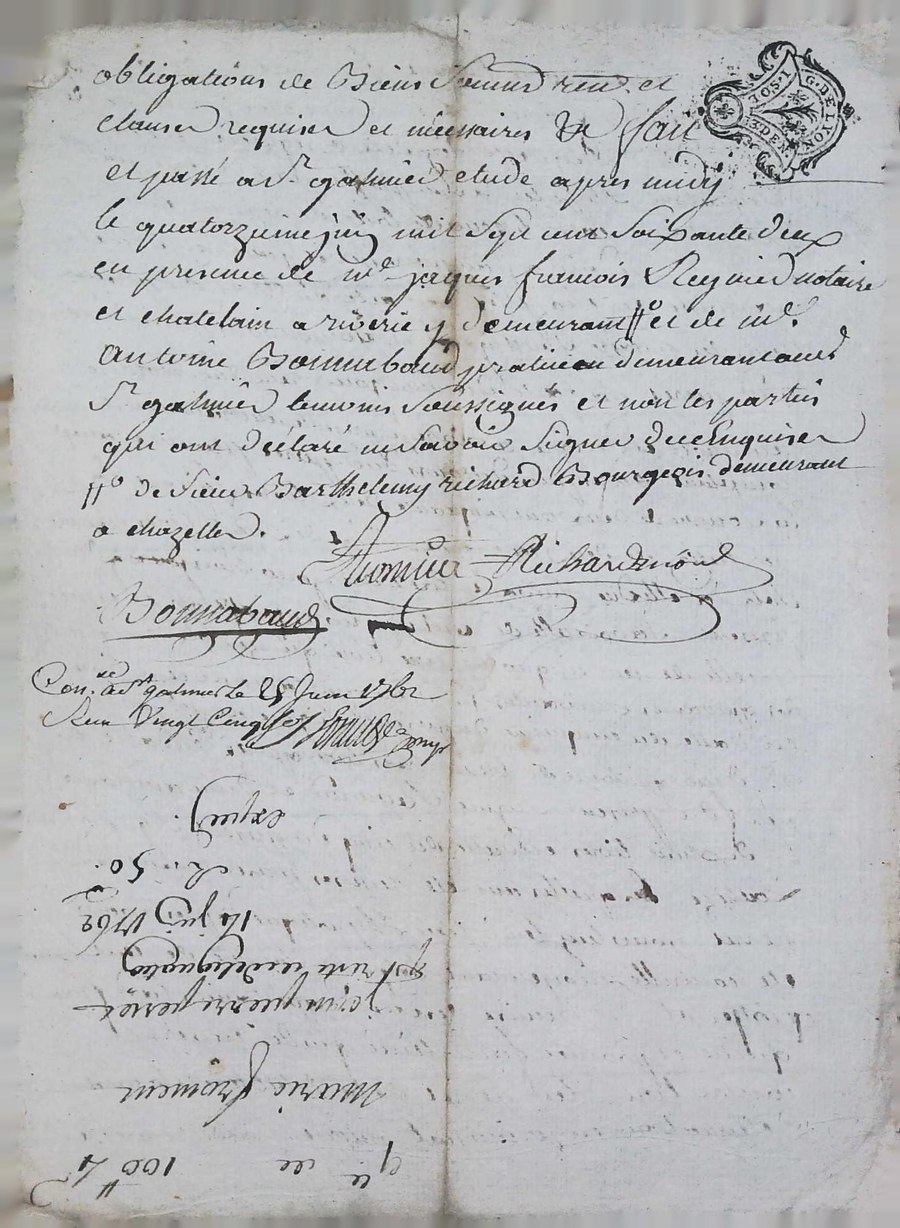 obligations de Biens Soumis ren et
clauses requises et nécessaires & fait
et passé a St galmier etude apres midy
le quatorzieme juin mil Sept cent Soixante deux
en presence de me jaques francois Reynied notaire
et chatelain a riverie y demeurant #o et de me
Antoine Bonnabaud praticien demeurant aud
St galmier temoins Soussignés et non les parties
qui ont déclaré ne Savoir Signer de ce Enquises
#o de Sieur Barthelemy richard Bourgeois demeurant
a chazelles.
Richard
Bonnabaud
Con. a St galmier Le 25 Juin 1762
Recu Vingt Cinq
G. DE LYON
1. SOL
3. DEN.
exped
50.
14 juin 1762
jean pierre
marie froment
100 tt